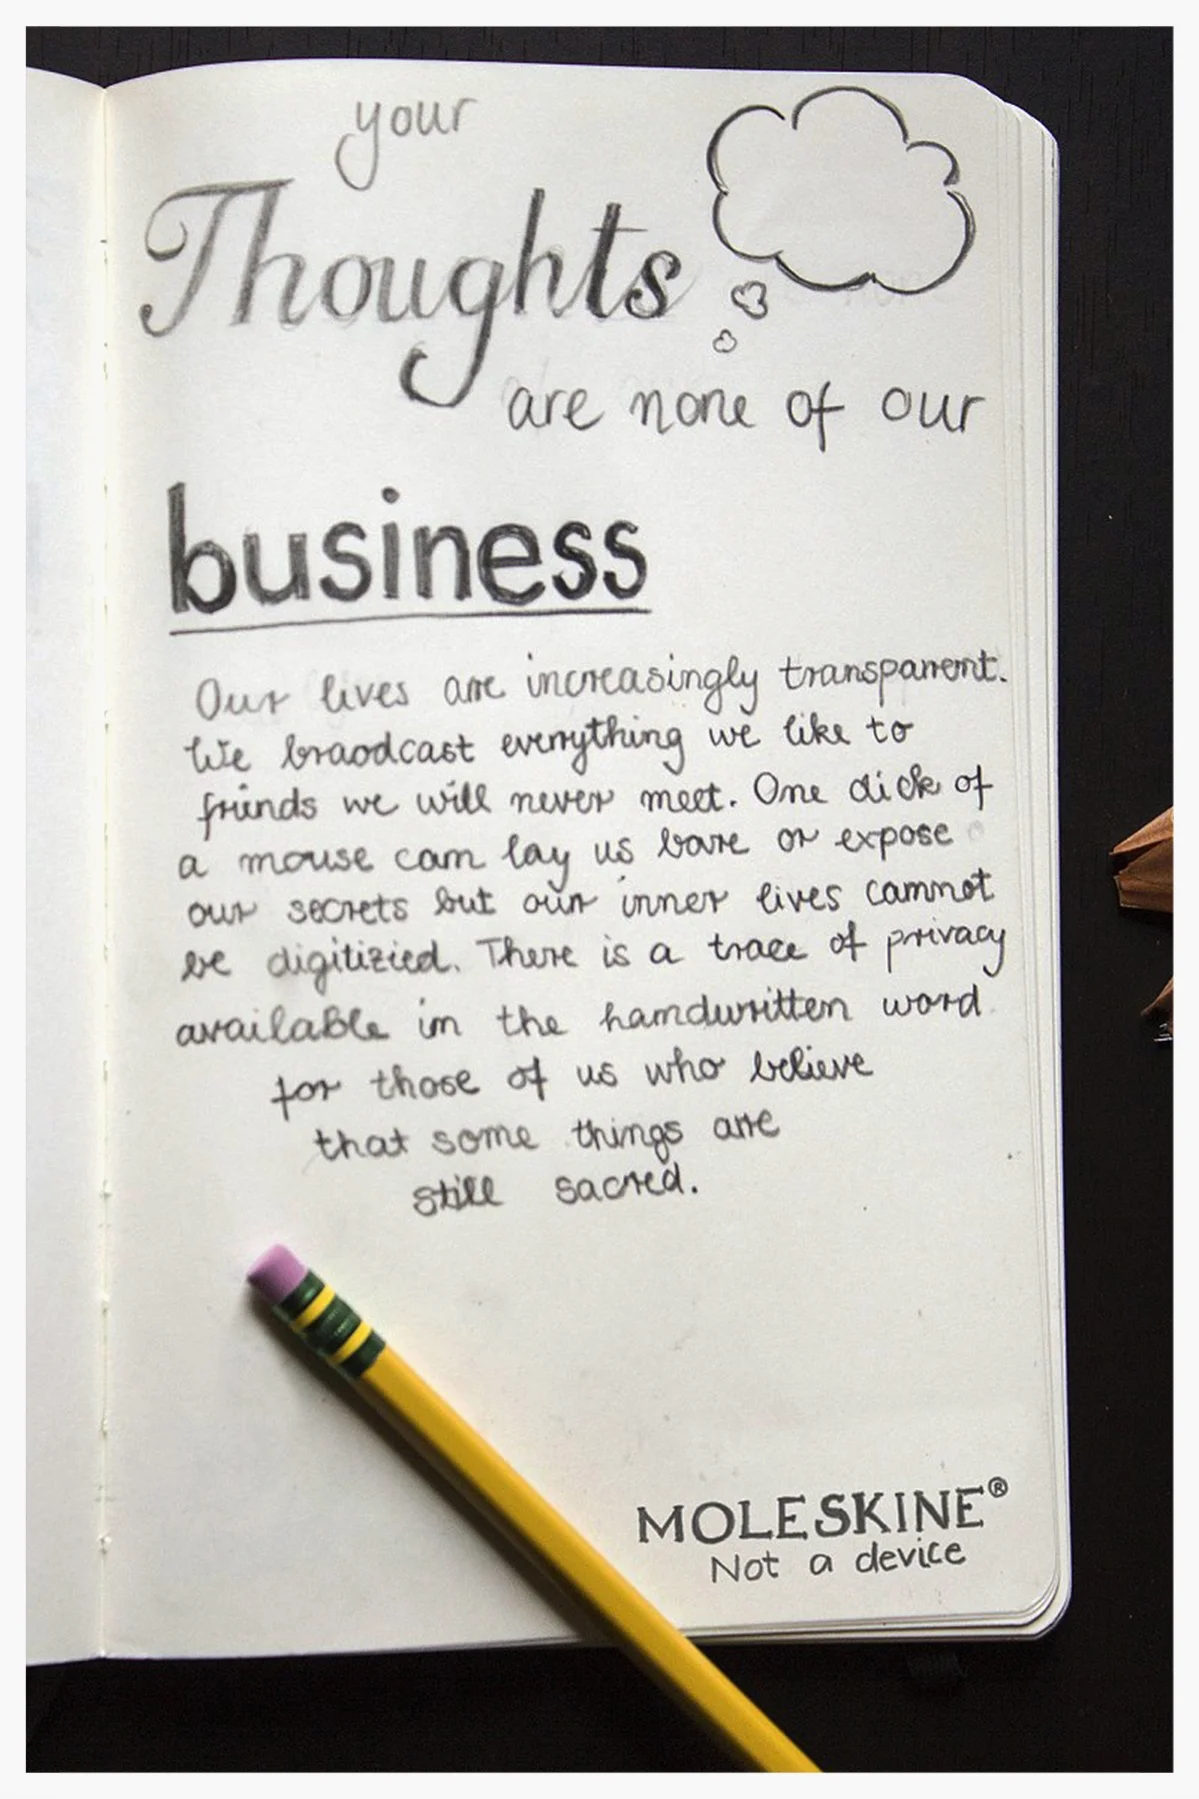 your
Thoughts
are none of our
business
Our lives are increasingly transparent.
We braodcast everything we like to
friends we will never meet. One click of
a mouse can lay us bare or expose
our secrets but our inner lives cannot
be digitizied. There is a trace of privacy
available in the handwritten word
for those of us who believe
that some things are
still sacred.
MOLESKINE®
Not a device